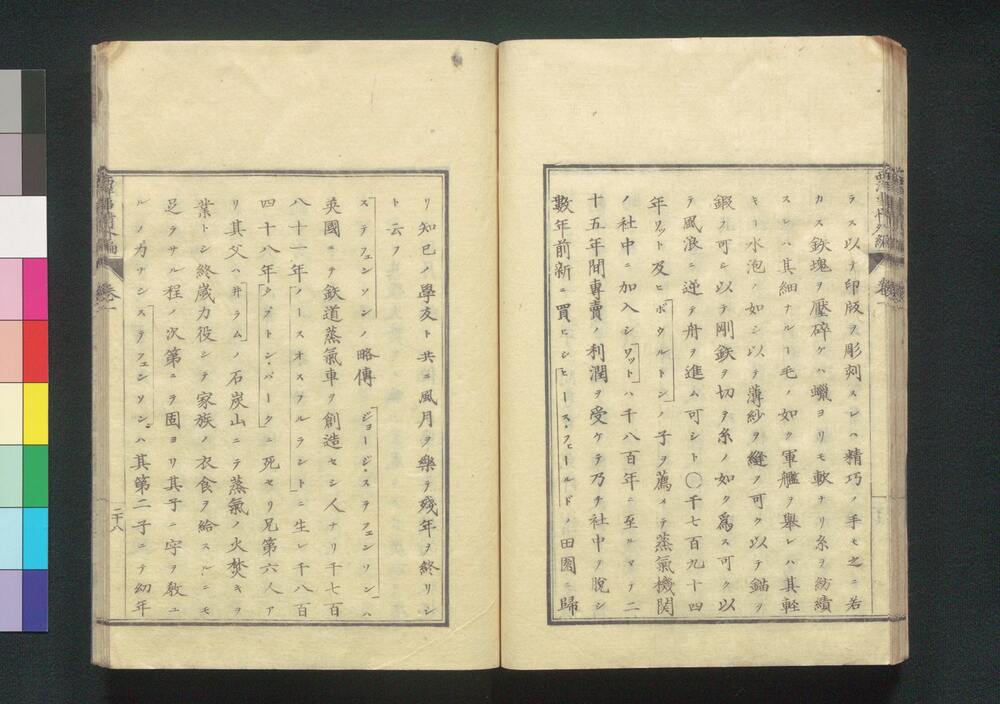 ラス以テ印版ヲ彫刻スレハ精巧ノ手モ之ニ若
カス鉄塊ヲ壓碎ケハ蠟ヨリモ軟ナリ糸ヲ紡績
スレハ其細ナルヿ毛ノ如ク軍艦ヲ舉レハ其輕
キヿ水泡ノ如シ以テ薄紗ヲ縫フ可ク以テ錨ヲ
鍛フ可シ以テ剛鉄ヲ切ヿ糸ノ如ク爲ス可ク以
テ風浪ニ逆テ舟ヲ進ム可シト〇千七百九十四
年ワット及ヒボウルトンノ子ヲ薦メテ蒸氣機関
ノ社中ニ加入シワットハ千八百年ニ至ルマテ二
十五年間専賣ノ利潤ヲ受ケテ乃チ社中ヲ脱シ
數年前新ニ買ヒシヒースフヒールドノ田園ニ歸
西洋事情外編 卷一
リ知已ノ學友ト共ニ風月ヲ樂テ残年ヲ終リシ
ト云フ
ステフェンソンノ略傳 ジョージ・ステフェンソンハ
英國ニテ鉄道蒸氣車ヲ創造セシ人ナリ千七百
八十一年ノースオスフルラントニ生レ千八百
四十八年タプトン・パークニ死セリ兄第六人ア
リ其父ハ井ラムノ石炭山ニテ蒸氣ノ火焚キヲ
業トシ終歳力役シテ家族ノ衣食ヲ給スルニモ
足ラサル程ノ次第ニテ固ヨリ其子ニ字ヲ教ユ
ルノ力ナシステフェンソンハ其第二子ニテ幼年
西洋事情外編 卷一
二十八